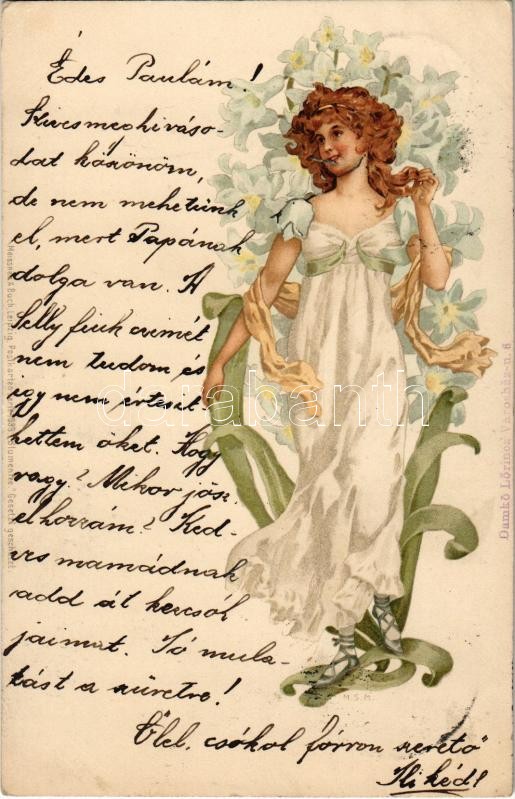 Édes Paulám!
Szives meghiváso-
dat köszönöm,
de nem mehetünk
el, mert Papának
dolga van. A
Selly fiuk czimét
nem tudom és
igy nem értesit-
hettem őket. Hogy
vagy? Mikor jösz
el hozzám? Ked-
ves mamádnak
add át kezcsól-
jaimat. Jó mula-
tást a szüretre!
Ölel, csókol forron szerető
Meissner & Buch Leipzig, Postkarten
"Blumenfee" Gesetzl. geschützt
darabanth
Damkó Lőrincz Városház-u. 6
M.S.M.